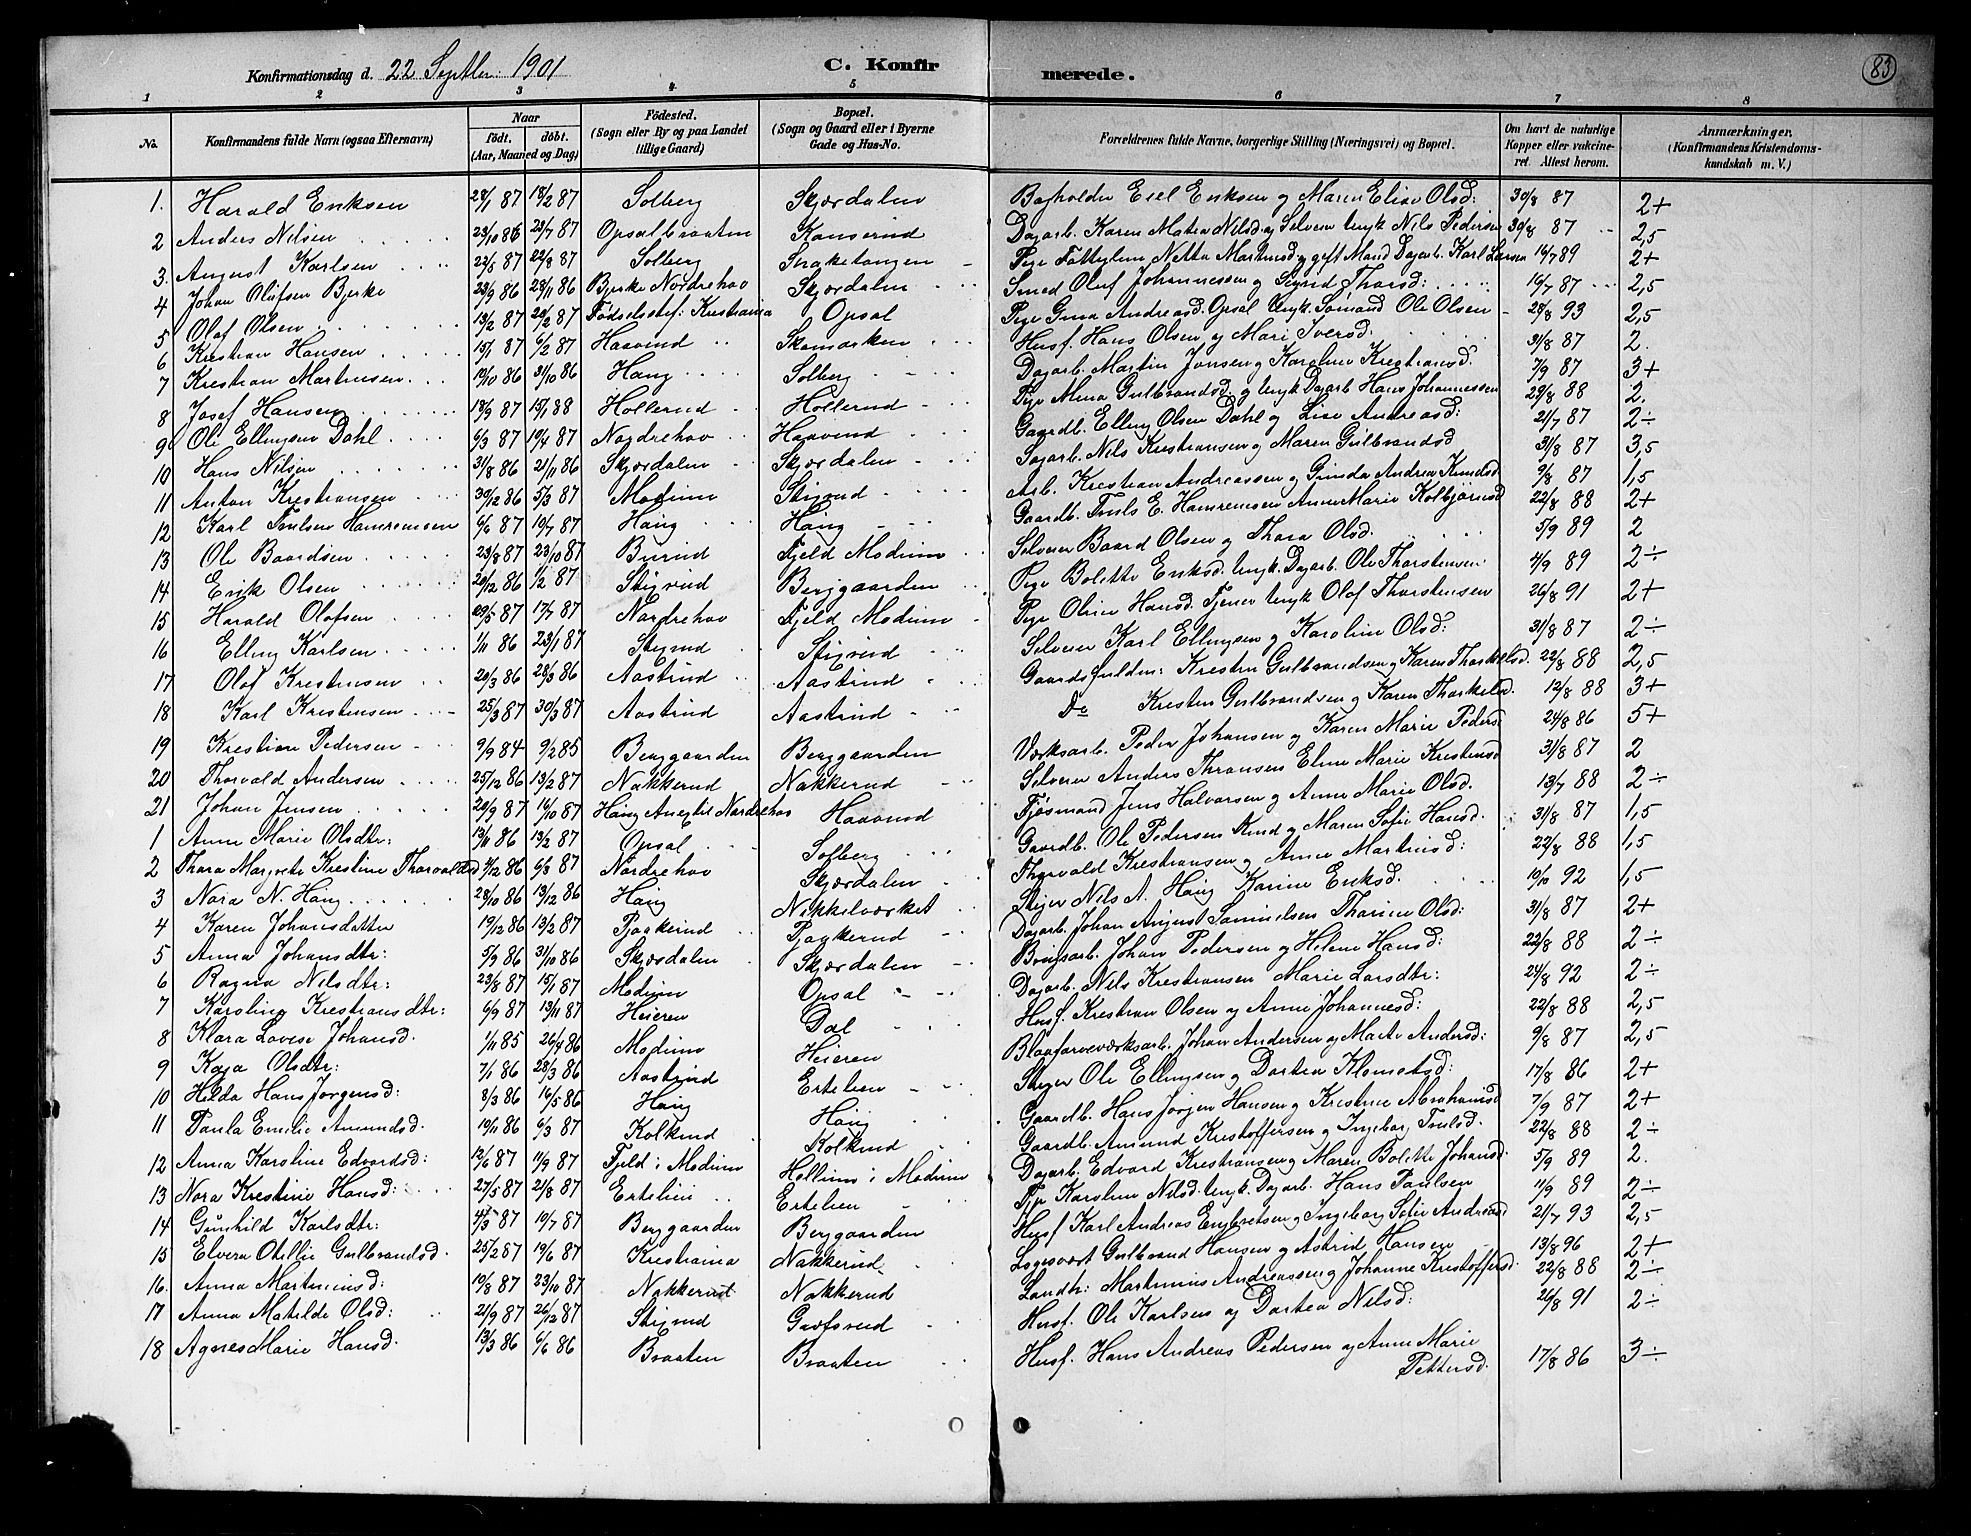 Konfirmationsdag d. 22 Septbr: 1901 C. Konfirmerede. 83
1 2 3 4 5 6 7 8
No. Konfirmandens fulde Navn (ogsaa Efternavn) Naar födt. döbt. (Aar, Maaned og Dag) Födested. (Sogn eller By og paa Landet tillige Gaard) Bopæl. (Sogn og Gaard eller i Byerne Gade og Hus-No. Forældrenes fulde Navne, borgerlige Stilling (Næringsvei) og Bopæl. Om havt de naturlige Kopper eller vakcineret. Attest herom. Anmærkninger. (Konfirmandens Kristendomskundskab m. V.)
1. Harald Eriksen 28/1 87 13/2 87 Solberg Skjærdalen Eriksen og Maren Elise Olsd: 30/8 87 2+
2 Anders Nilsen 23/10 86 23/7 87 Opsalbraaten Dagarb. Karen Matea Nilsd. og Selveier Ungk. Nils Pedersen 30/8 87 2,5
3. August Karlsen 22/5 87 22/8 87 Solberg Snaketangen Pige Netta Martinsd. og gift Mand Dagarb. Karl Larsen 16/7 89 2+
4 Johan Olufsen Bjerke 23/9 86 28/11 86 Bjerke Nordrehov Skjærdalen Smed Oluf Johannessen og Sigrid Thorsd: 16/7 87 2,5
5 Olof Olsen 13/2 87 20/2 87 Födselsstif: Kristiania Opsal Pige Gina Andreasd. Opsal Ungk. Sömand Ole Olsen 28/8 93 2,5
6 Krestian Hansen 15/1 87 6/2 87 Haavind Skamarken Husf. Hans Olsen og Mari Iversd. 31/8 87 2.
7 Krestian Martinsen 19/10 86 31/10 86 Haug Solberg Dagarb. Martin Jonsen og Karoline Krestiansd. 7/9 87 3+
8 Josef Hansen 18/9 87 15/1 88 Hollerud Hollerud Pige Mina Gulbrandsd. Ungk. Dagarb. Hans Johannessen 29/8 88 2.
9 Ole Ellingsen Dahl 6/3 87 10/4 87 Nordrehov Haavind Gaardb. Elling Olsen Dahl og Lise Andreasd: 21/7 87 2÷
10 Hans Nilsen 31/8 86 21/11 86 Skjærdalen Skjærdalen Sagarb. Nils Krestiansen og Maren Gulbrandsd 31/8 87 3,5
11 Anton Krestiansen 30/12 86 5/3 87 Modum Stigrud Arb. Krestian Andreassen og Gunda Andrea Knudsd 9/8 87 1,5
12 Karl Truls Hamremsen 6/6 87 10/7 87 Haug Haug Gaardb. Truls E. Hamremsen Anne Marie Kolbjörnsd 22/8 88 2+
13 Ole Baardsen 23/8 87 23/10 87 Burud Fjeld Modum Selveier Baard Olsen og Thora Olsd. 5/9 89 2
14 Erik Olsen 20/12 86 1/2 87 Stigrud Berggaarden Pige Bolette Eriksd. Ungk. Dagarb. Ole Thorstensen 4/9 89 2÷
15 Harald Olofsen 29/5 87 17/7 87 Nordrehov Fjeld Modum Pige Oline Hansd. Tjener Ungk Olof Thorstensen 26/8 91 2+
16 Elling Karlsen 1/11 86 23/1 87 Stigrud Stigrud Selveier Karl Ellingsen og Karoline Olsd: 31/8 87 2÷
17 Olof Krestensen 20/3 86 28/3 86 Aastrud Aastrud Kresten Gulbrandsen og Karen Thorkelsd. 22/8 88 2,5
18 Karl Krestensen 25/3 87 30/3 87 Aastrud Aastrud Do Kresten Gulbrandsen og Karen Thorkelsd. 12/8 88 3+
19 Krestian Pedersen 9/9 84 9/2 85 Berggaarden Berggaarden Værksarb. Peder Johansen og Karen Marie Pedersd 24/8 86 5+
20 Thorvald Andersen 25/12 86 13/2 87 Nakkerud Nakkerud Selveier Anders Elene Marie Kristensd 31/8 87 2
21 Johan Jensen 20/9 87 16/10 87 Haug Annex til Nordrehov Haavind Fjösmand Jens Halvorsen og Anne Marie Olsd. 13/7 88 2÷
1 Anne Marie Olsdtr: 13/11 86 13/2 87 Opsal Solberg Gaardb. Ole Pedersen og Maren Sofie Hansd. 31/8 87 1,5
2 Thora Margrete Kristine Thorvaldsd 4/12 86 6/3 87 Nordrehov Skjærdalen Thorvald Krestiansen og Anne Martinsd: 22/8 88 1,5
3 Nora N. Haug 28/10 86 13/12 86 Haug Nikkelværket Stiger Nils A. Haug Karine Eriksd. 10/10 92 1,5
4 Karen Johansdatter 19/12 86 13/2 87 Pjaakerud Pjaakerud Dagarb. Johan August Samuelsen Thorine Olsd: 31/8 87 2+
5 Anna Johansdtr: 5/9 86 31/10 86 Skjærdalen Skjærdalen Johan Pedersen og Helene Hansd: 22/8 88 2÷
6 Ragna Nilsdtr: 23/8 87 15/1 87 Modum Opsal Dagarb. Nils Krestiansen Marie Larsdtr: 24/8 92 2÷
7 Karoline Krestiansdtr: 6/9 87 13/11 87 Heieren Dal Husf. Krestian Olsen og Anne Johannesd: 22/8 88 2,5
8 Klara Lovise Johansd. 1/11 85 26/4 86 Modum Heieren Blaafarveværksarb. Johan Andersen og Marte Andersd: 9/8 87 2,5
9 Kaja Olsdtr: 7/1 86 28/3 86 Aastrud Ertelien Stiger Ole Ellingsen og Dortea Klemetsd: 17/8 86 2+
10 Hilda Hans Jörgensd: 8/3 86 16/5 86 Haug Haug Gaardb. Hans Jörgen Hansen og Kristine Abrahamsd 7/9 87 2+
11 Paula Emilie Amundsd. 10/11 86 6/3 87 Kolkind Kolkind Gaardb. Amund Kristoffersen og Ingeborg Trulsd. 22/8 88 2÷
12 Anna Karoline Edvardsd: 12/6 87 11/9 87 Fjeld i Modum Hollum i Modum Dagarb. Edvard Krestiansen og Maren Bolette Johansd. 5/9 89 2.
13 Nora Kristine Hansd: 27/5 87 21/8 87 Ertelien Ertelien Pige Karoline Nilsd. Ungk. Dagarb. Hans Paulsen 11/9 89 2÷
14 Gunhild Karlsdtr: 4/5 87 10/7 87 Berggaarden Berggaarden Husf Karl Andreas Engbretsen og Ingeborg Sofie Andreasd 21/7 93 2,5
15 Elvera Otillie Gulbrandsd. 25/2 87 19/6 87 Kristiania Nakkerud Gulbrand Hansen og Astrid Hansen 13/8 96 2+
16. Anna Martiniusd: 10/8 87 23/10 87 Nakkerud Nakkerud Landh: Martinius Andreassen og Johanne Kristoffersd. 22/8 88 2÷
17 Anna Matilde Olsd: 21/9 87 26/12 87 Stigrud Husf. Ole Karlsen og Dortea Nilsd: 26/8 91 2÷
18 Agnes Marie Hansd. 13/3 86 6/6 86 Braaten Braaten Husf. Hans Andreas Pedersen og Anne Marie Pettersd. 17/8 86 3÷